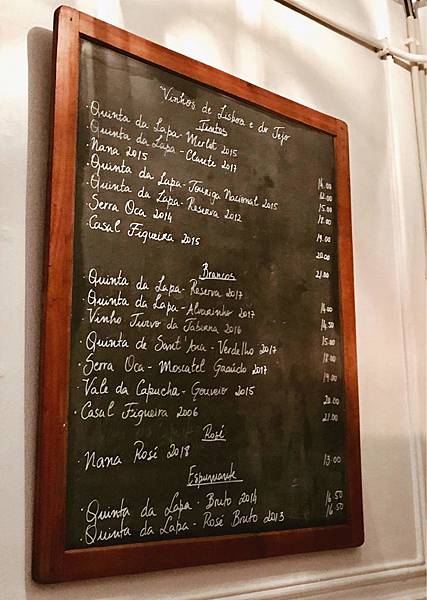 Vinhos de Lisboa e do Tejo
Tintos
· Quinta da Lapa - Merlot 2015 14.00
· Quinta da Lapa - Clarete 2017 12.00
· Nana 2015 15.00
· Quinta da Lapa - Touriga Nacional 2015 18.00
· Quinta da Lapa - Reserva 2012 19.00
· Serra Oca 2014 20.00
· Casal Figueira 2015 21.00
Brancos
· Quinta da Lapa - Reserva 2017 14.00
· Quinta da Lapa - Alvarinho 2017 14.50
· Vinho Turvo da Taberna 2016 15.00
· Quinta de Sant'Ana - Verdelho 2017 18.00
· Serra Oca - Moscatel Graúdo 2017 19.00
· Vale da Capucha - Gouveio 2015 20.00
· Casal Figueira 2006 21.00
Rosé
· Nana Rosé 2018 13.00
Espumante
· Quinta da Lapa - Bruto 2014 16.50
· Quinta da Lapa - Rosé Bruto 2013 16.50